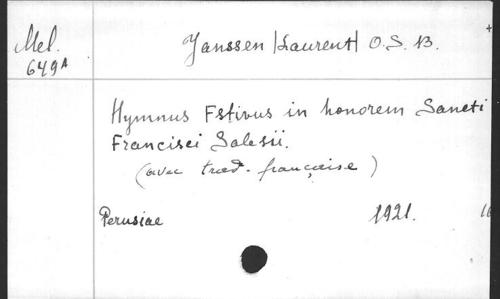 Mel. Janssen (Laurent) O.S.B. +
649A
Hymnus Fstivus in honorem Sancti
Francisci Salesii.
(avec trad. française)
Perusiae 1921. 16